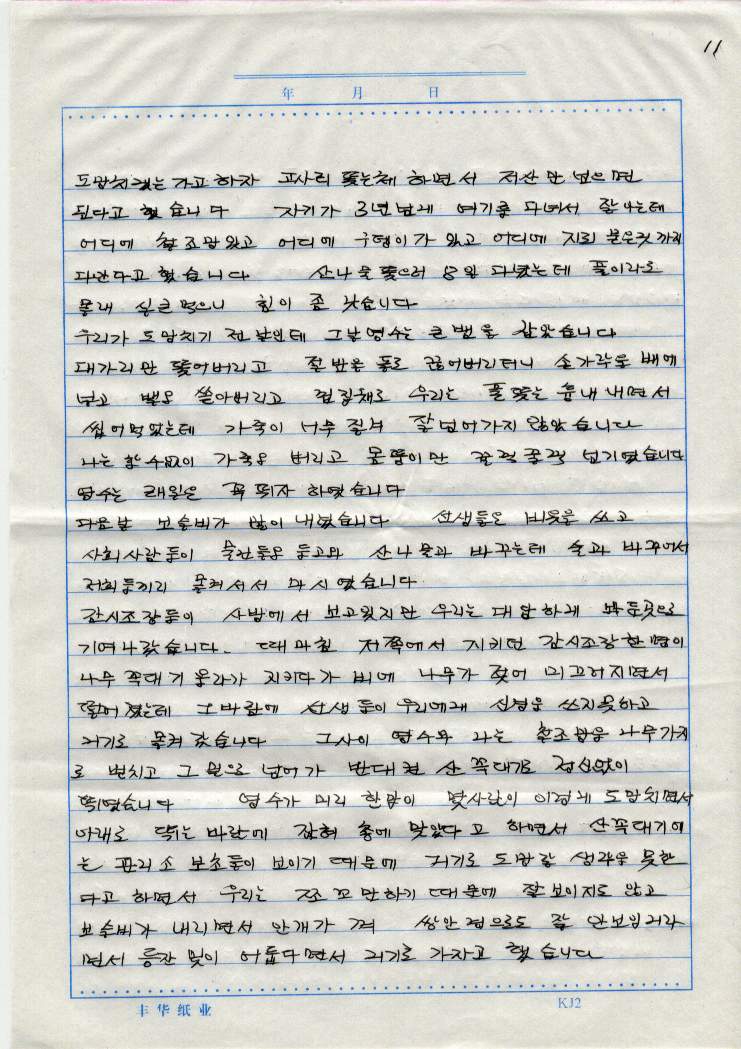 11
年 月 日
도망치겠는가고 하자 고사리 뜯는체 하면서 저산만 넘으면
된다고 했습니다 자기가 3년넘게 여기를 다녀서 잘 아는데
어디에 철조망 있고 어디에 구뎅이가 있고 어디에 지뢰 묻은것까지
다안다고 했습니다 산나물 뜯으러 8일 다녔는데 풀이라도
몰래 실큰 먹으니 힘이 좀 났습니다
우리가 도망치기 전날인데 그날 영수는 큰 뱀을 잡았습니다
대가리만 뜯어버리고 절반은 돌로 끊어버리더니 손가락으로 배에
넣고 밸은 쓸어버리고 껍질채로 우리는 풀 뜯는 흉내 내면서
씹어먹었는데 가죽이 너무 질겨 잘 넘어가지 않았습니다
나는 할수없이 가죽은 버리고 몸뚱이만 꿀꺽꿀꺽 넘기였습니다
영수는 래일은 꼭 뛰자 하였습니다
다음날 보슬비가 많이 내렸습니다 선생들은 비옷을 쓰고
사회사람들이 물건들을 들고와 산나물과 바꾸는데 술과 바꾸어서
저희들끼리 몰켜서서 마시였습니다
감시조장들이 사방에서 보고있지만 우리는 대담하게 놔둔곳으로
기여나갔습니다. 때마침 저쪽에서 지키던 감시조장 한명이
나무 꼭대기 올라가 지키다가 비에 나무가 젖어 미끄러지면서
떨어졌는데 그바람에 선생들이 우리에게 신경을 쓰지못하고
거기로 몰켜 갔습니다 그사이 영수와 나는 철조망을 나무가지
로 받치고 그 밑으로 넘어가 반대켠 산 꼭대기로 정신없이
뛰였습니다 영수가 미리 한말이 몇사람이 이렇게 도망치면서
아래로 뛰는 바람에 잡혀 총에 맞았다고 하면서 산꼭대기에
는 관리소 보초들이 보이기 때문에 거기로 도망갈 생각을 못한
다고 하면서 우리는 쪼꼬만하기 때문에 잘 보이지도 않고
보슬비가 내리면서 안개가 껴 쌍안경으로도 잘 안보일거라
면서 등잔 밑이 어둡다면서 거기로 가자고 했습니다
丰华纸业 KJ2